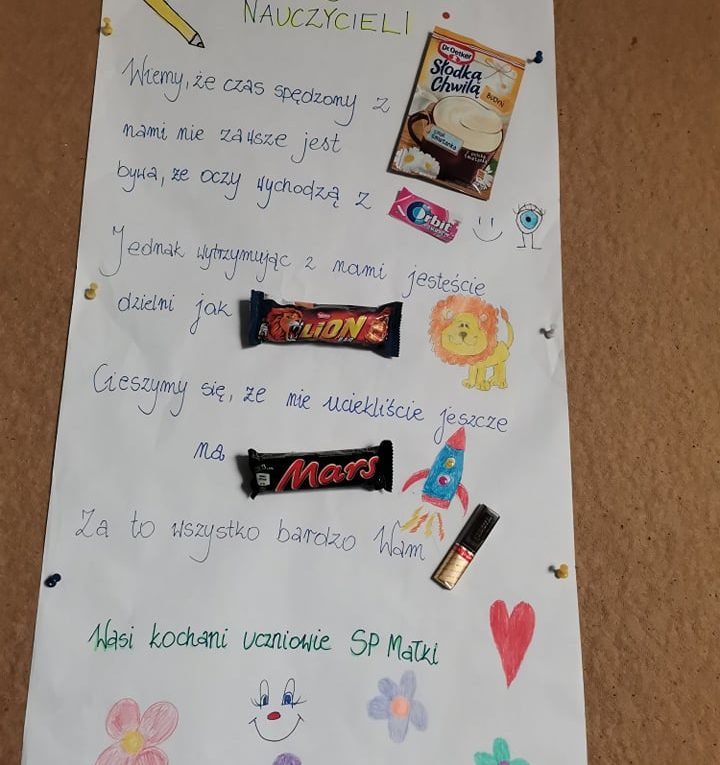 NAUCZYCIELI
Wiemy, że czas spędzony z
nami nie zawsze jest
Dr. Oetker
Słodka
Chwila
BUDYŃ
bywa, że oczy wychodzą z
Orbit
Jednak wytrzymując z nami jesteście
dzielni jak
LION
Cieszymy się, że nie uciekliście jeszcze
na
Mars
Za to wszystko bardzo Wam
Wasi kochani uczniowie SP Małki